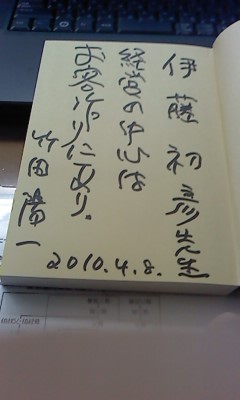 伊藤初彦先生
経営の中心は
お客作りにあり。
竹田陽一
2010.4.8.